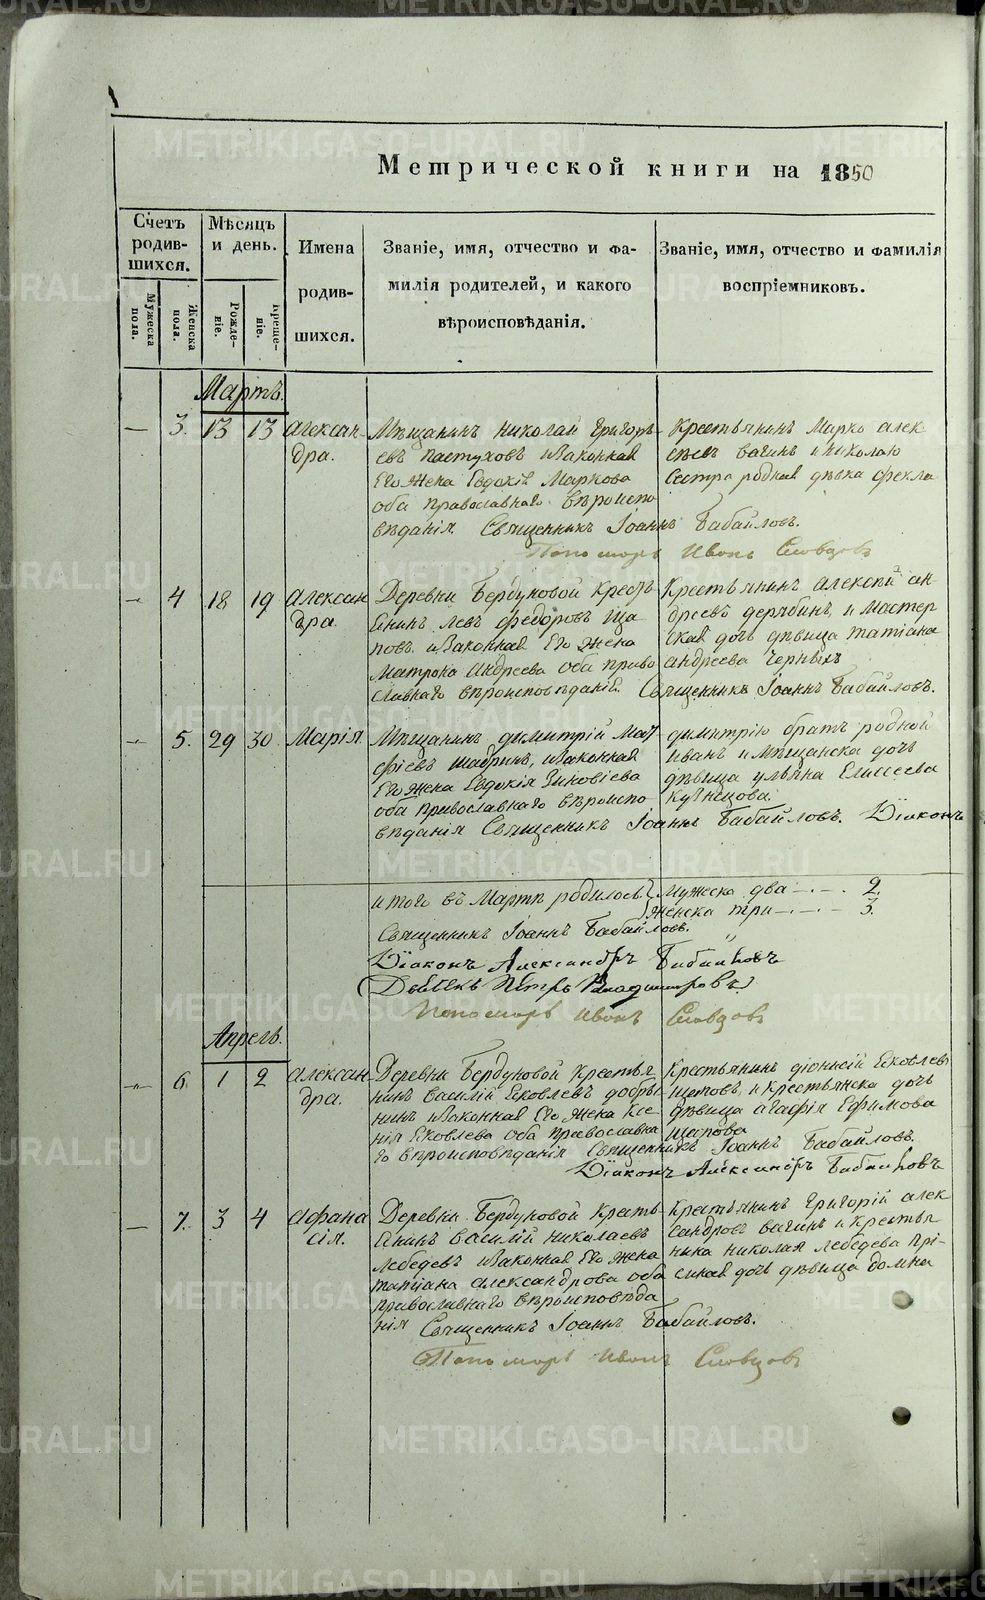 Метрической книги на 1850
Счетъ родив-шихся.
Мужеска пола.
Женска пола.
Мѣсяцъ и день.
Рожде-ніе.
Креще-ніе.
Имена родив-шихся.
Званіе, имя, отчество и фа-
милія родителей, и какого
вѣроисповѣданія.
Званіе, имя, отчество и фамилія
воспріемниковъ.
Мартъ.
— 3. 13 13 Алексан-
дра.
Мѣщанинъ Николай Григорь-
евъ Пастуховъ и Законная
Его жена Евдокія Маркова
оба православнаго вѣроиспо
вѣданія. Священникъ Іоаннъ Бабайловъ.
Крестьянинъ Марко Алек
сѣевъ Вагинъ и Николаю
Сестра родная дѣвка Фекла
Пономарь Иванъ Словцовъ
— 4 18 19 Алексан
дра.
Деревни Бердуновой Кресть
янинъ Левъ Федоровъ Ща
повъ и Законная Его жена
Матрона Андреева оба право
славнаго вѣроисповѣданій. Священникъ Іоаннъ Бабайловъ.
Крестьянинъ Алексѣй Ан-
дреевъ Дерябинъ, и Мастер
ская дочь дѣвица Татіана
Андреева Черныхъ
— 5. 29 30 Марія.
Мѣщанинъ Димитрій Мат
фіевъ Шадринъ, и Законная
Его жена Евдокія Зиновіева
оба православнаго вѣроиспо
вѣданія Священникъ Іоаннъ Бабайловъ. Діаконъ
Димитрію братъ родной
Иванъ и Мѣщанска дочь
дѣвица Ульяна Елисеева
Кузнецова.
Итого въ Мартѣ родилось Мужеска два — . — . 2.
Женска три — . — . — 3.
Священникъ Іоаннъ Бабайловъ.
Діаконъ Александръ Бабайловъ
Дьячекъ Петръ Владимировъ
Пономарь Иванъ Словцовъ
Апрель.
— 6. 1 2 Алексан
дра.
Деревни Бердуновой Крестья
нинъ Василій Яковлевъ Добры
нинъ и Законная Его жена Ксе
нія Яковлева оба Православна
го вѣроисповѣданія Священникъ Іоаннъ Бабайловъ.
Крестьянинъ Діонисій Яковлевъ
Щаповъ, и Крестьянска дочь
дѣвица Агафія Ефимова
Щапова
Діаконъ Александръ Бабайловъ
— 7. 3 4 Афана
сія.
Деревни Бердуновой Кресть-
янинъ Василій Николаевъ
Лебедевъ и Законная Его жена
Татіана Александрова оба
православнаго вѣроисповѣда
нія Священникъ Іоаннъ Бабайловъ.
Крестьянинъ Григорій Алек
сандровъ Вагинъ и Крестья
нина Николая Лебедева Прі-
сная дочь дѣвица Домна
Пономарь Иванъ Словцовъ
METRIKI.GASO-URAL.RU